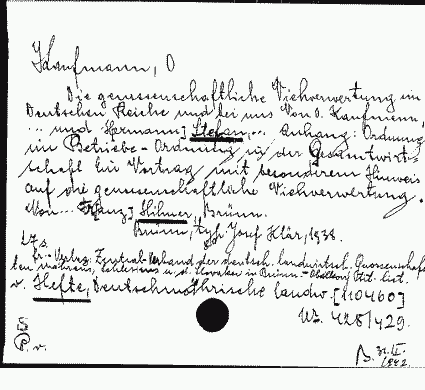 Kaufmann, O
Die genossenschaftliche Viehverwertung im
Deutschen Reiche und bei uns von O. Kaufmann,
... und Hermann] Stefan... Anhang: Ordnung
im Betriebe - Ordnung in der Gesamtwirt-
schaft Ein Vortrag mit besonderem Hinweis
auf die genossenschaftliche Viehverwertung.
Von... Franz] Hilmer, Brünn.
Brünn, Typ. Josef Klär, 1938.
27 s.
Verlag: Zentral-Verband der deutsch. landwirtsch. Genossenschaf-
ten Mährens, Schlesiens u. d. Slovakei in Brünn.- Obálkový tit. list.
v. Hefte, Deutschmährische landw. [110460]
Nr. 428/429.
B. v.